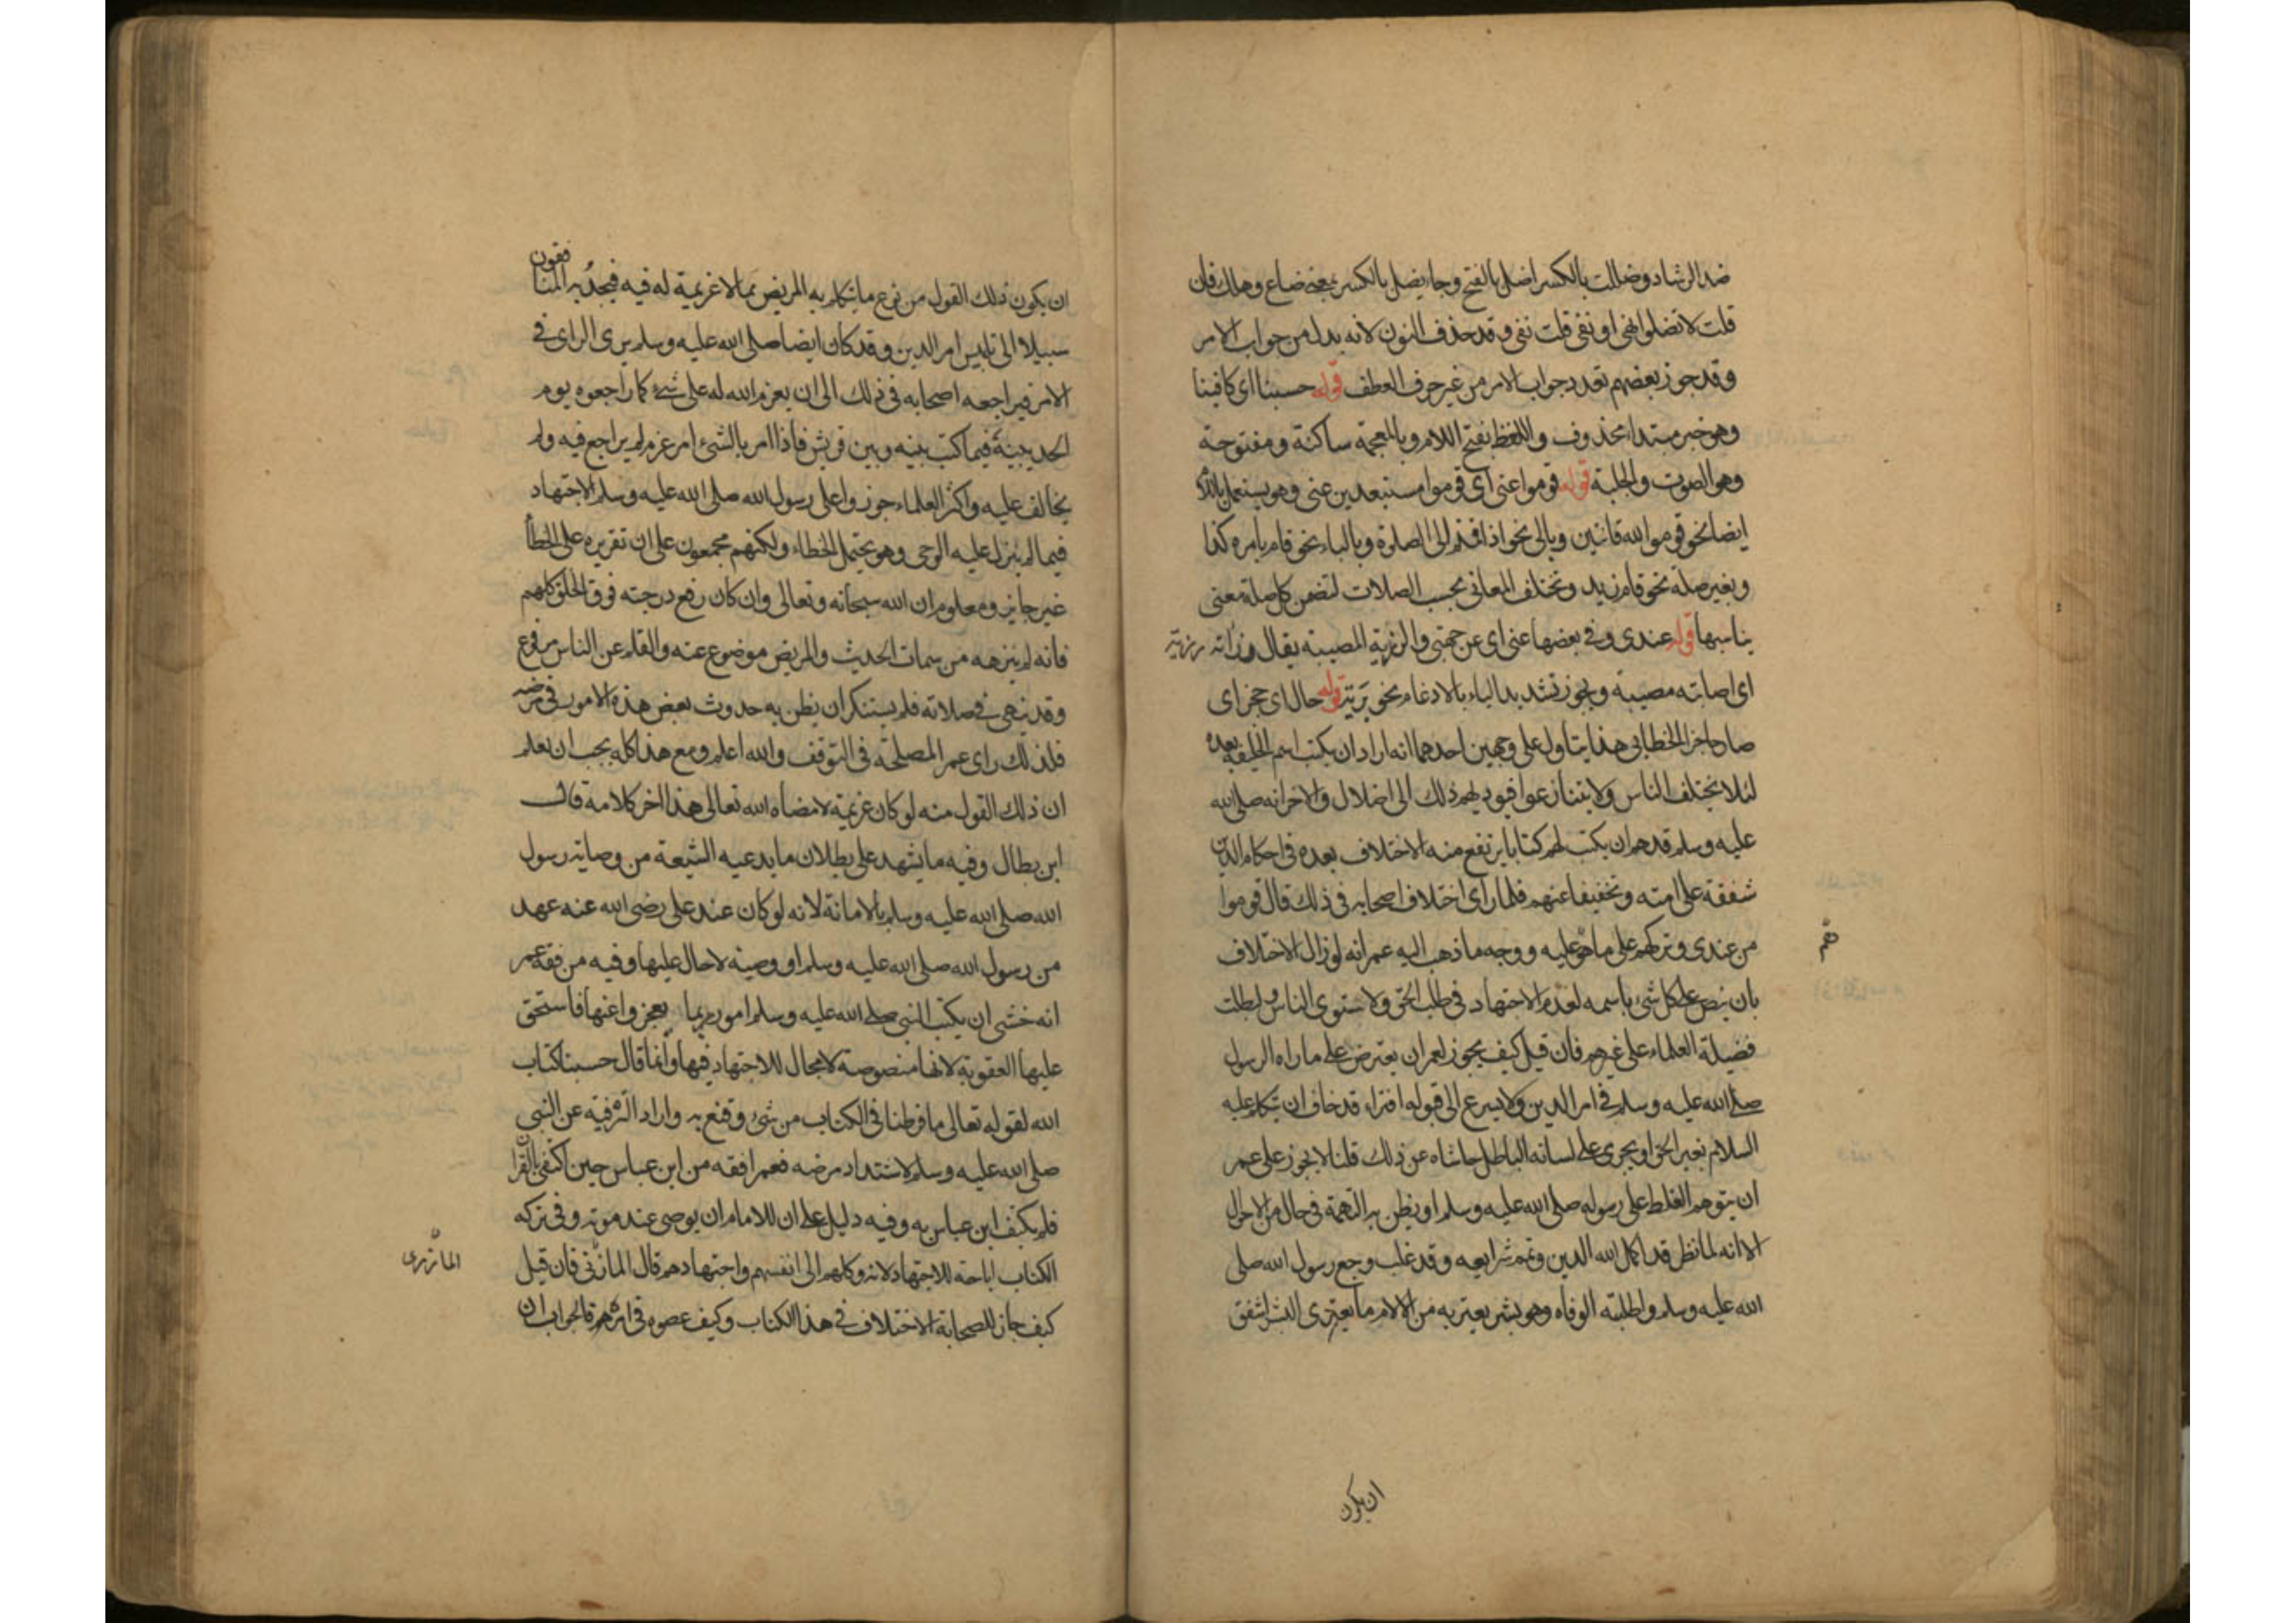 ضد الرشاد وضللت بالكسر اضل بالفتح وجا يضل بالكسر بمعنى ضاع وهلك فان
قلت لا تضلوا نهى او نفى قلت نفى وقد حذف النون لانه بدل من جواب الامر
وقد جوز بعضهم تعدد جواب الامر من غير حرف العطف قوله حسبنا اى كافينا
وهو خبر مبتدا محذوف واللغط بفتح اللام وبالمعجمة ساكنة ومفتوحة
وهو الصوت والجلبة قوله قوموا عنى اى قوموا مستبعدين عنى وهو يستعمل باللام
ايضا نحو قوموا لله قانتين وبالى نحو اذا قمتم الى الصلوة وبالباء نحو قام بامره كذا
وبغير صلة نحو قام زيد وتختلف المعانى بحسب الصلات لتضمن كل صلة معنى
يناسبها قوله عندى وفى بعضها عنى اى عن جهتى والرزية المصيبة يقال رزاته رزية
اى اصابته مصيبة ويجوز تشديد الياء بالادغام نحو برية قوله حال اى حجز اى
صار حاجزا الخطابى هذا يتاول على وجهين احدهما انه اراد ان يكتب اسم الخليفة بعده
لئلا يختلف الناس ولا يتنازعوا فيوديهم ذلك الى الضلال والاخر انه صلى الله
عليه وسلم قد هم ان يكتب لهم كتابا يرتفع منه الاختلاف بعده فى احكام الدين
شفقة على امته وتخفيفا عنهم فلما راى اختلاف اصحابه فى ذلك قال قوموا
من عندى وتركهم على ما هو عليه ووجه ما ذهب اليه عمر انه لو زال الاختلاف
هم
بان ينص على كل شئ باسمه لعدم الاجتهاد فى طلب الحق ولاستوى الناس ولبطلت
فضيلة العلماء على غيرهم فان قيل كيف يجوز لعمر ان يعترض على ما راه الرسول
صلى الله عليه وسلم فى امر الدين ولا يسرع الى قبوله افتراه قد خاف ان يتكلم عليه
السلام بغير الحق او يجرى على لسانه الباطل حاشاه عن ذلك قلنا لا يجوز على عمر
ان يتوهم الغلط على رسوله صلى الله عليه وسلم او يظن به التهمة فى حال من الاحوال
الا انه لما نظر قد اكمل الله الدين وتمم شرايعه وقد غلب وجع رسول الله صلى
الله عليه وسلم واظلته الوفاه وهو بشر يعتريه من الالام ما يعترى البشر اشفق
ان يكون
ان يكون ذلك القول من نوع ما يتكلم به المريض مما لا عزيمة له فيه فيجد به المنافقون
سبيلا الى تلبيس امر الدين وقد كان ايضا صلى الله عليه وسلم يرى الراى فى
الامر فيراجعه اصحابه فى ذلك الى ان يعزم الله له على شئ كما راجعوه يوم
الحديبية فيما كتب بينه وبين قريش فاذا امر بالشئ امر عزم لم يراجع فيه ولم
يخالف عليه واكثر العلماء جوزوا على رسول الله صلى الله عليه وسلم الاجتهاد
فيما لم ينزل عليه الوحى وهو يحتمل الخطاء ولكنهم مجمعون على ان تقريره على الخطأ
غير جايز ومعلوم ان الله سبحانه وتعالى وان كان رفع درجته فوق الخلق كلهم
فانه لم ينزهه من سمات الحديث والمريض موضوع عنه والقلم عن الناس مرفوع
وقد سهى فى صلاته فلم يستنكر ان يظن به حدوث بعض هذه الامور فى مرضه
فلذلك راى عمر المصلحة فى التوقف والله اعلم ومع هذا كله يجب ان نعلم
ان ذلك القول منه لو كان عزيمة لامضاه الله تعالى هذا اخر كلامه قال
ابن بطال وفيه ما يشهد على بطلان ما يدعيه الشيعة من وصاية رسول
الله صلى الله عليه وسلم بالامانة لانه لو كان عند على رضى الله عنه عهد
من رسول الله صلى الله عليه وسلم او وصية لاحال عليها وفيه من فقه عمر
انه خشى ان يكتب النبى صلى الله عليه وسلم امور ربما يعجزوا عنها فاستحق
عليها العقوبة لانها منصوصة لا مجال للاجتهاد فيها وانما قال حسبنا كتاب
الله لقوله تعالى ما فرطنا فى الكتاب من شئ وقنع به واراد الترفية عن النبى
صلى الله عليه وسلم لاشتداد مرضه فعمر افقه من ابن عباس حين اكتفى بالقران
فلم يكتف ابن عباس به وفيه دليل على ان للامام ان يوصى عند موته وفى تركه
الكتاب اباحة للاجتهاد لانه وكلهم الى انفسهم واجتهادهم قال المازنى فان قيل
المازرى
كيف جاز للصحابة الاختلاف فى هذا الكتاب وكيف عصوه فى امرهم فالجواب ان